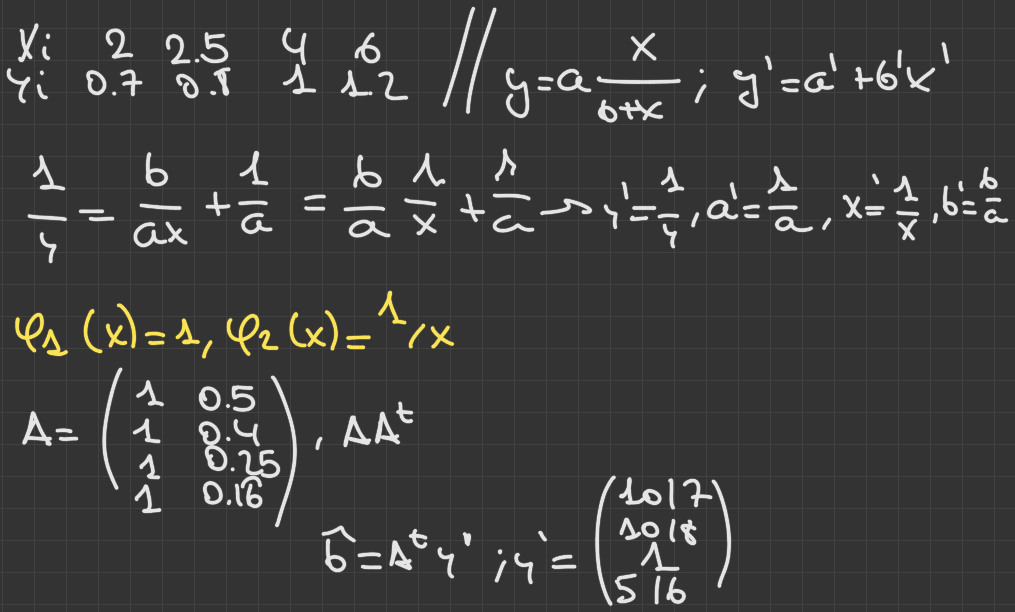 Xi 2 2.5 4 6 // y = a x/(b+x) ; y' = a' + b'x'
yi 0.7 0.8 1 1.2
1/y = b/(ax) + 1/a = b/a 1/x + 1/a → y' = 1/y, a' = 1/a, x' = 1/x, b' = b/a
φ1 (x) = 1, φ2 (x) = 1/x
A = ( 1 0.5
1 0.4
1 0.25
1 0.16̂ ) , AAᵗ
b̂ = Aᵗ y' ; y' = ( 10/7
10/8
1
5/6 )